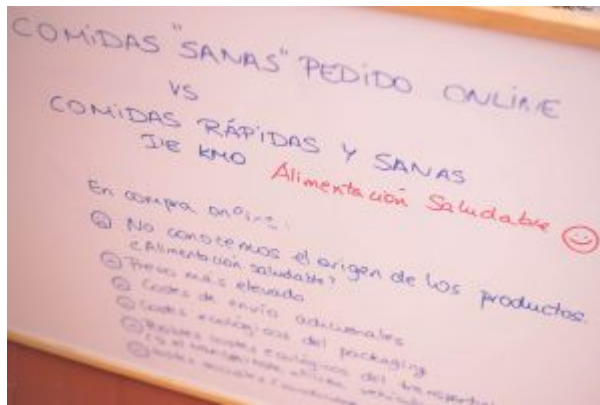 COMIDAS "SANAS" PEDIDO ONLINE
VS
COMIDAS RÁPIDAS Y SANAS
DE KM0 Alimentación Saludable
En compra online:
No conocemos el origen de los productos.
¿Alimentación saludable?
Precio más elevado
Costes de envío adicionales
Costes ecológicos del packaging
Posibles costes ecológicos del transporte